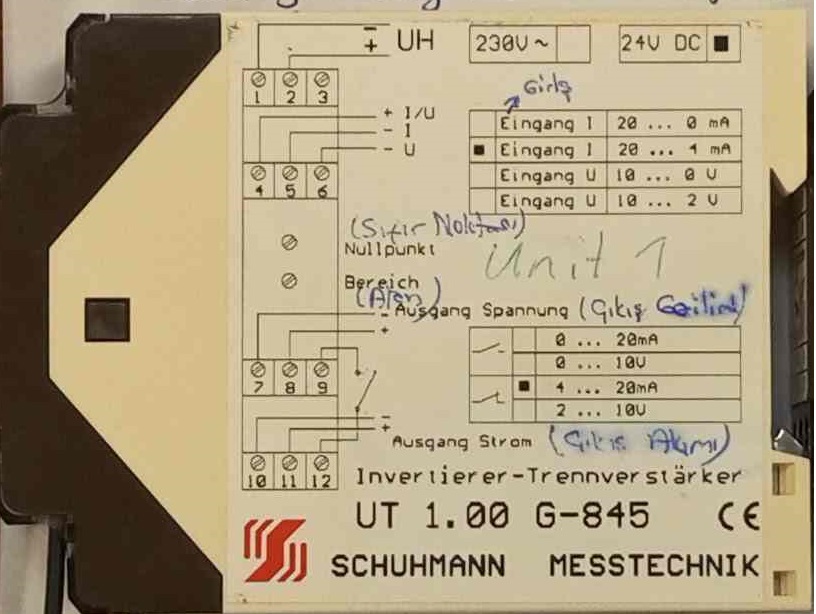 − UH
+
230V ~
24V DC ■
1 2 3
Giriş
+ I/U
− I
− U
Eingang I 20 ... 0 mA
■ Eingang I 20 ... 4 mA
Eingang U 10 ... 0 V
Eingang U 10 ... 2 V
4 5 6
(Sıfır Noktası)
Nullpunkt
Unit 1
Bereich
(Alan)
− Ausgang Spannung (Çıkış Gerilimi)
+
0 ... 20mA
0 ... 10V
■ 4 ... 20mA
2 ... 10V
7 8 9
−
+
Ausgang Strom (Çıkış Akımı)
10 11 12
Invertierer-Trennverstärker
UT 1.00 G-845 CE
SCHUHMANN MESSTECHNIK